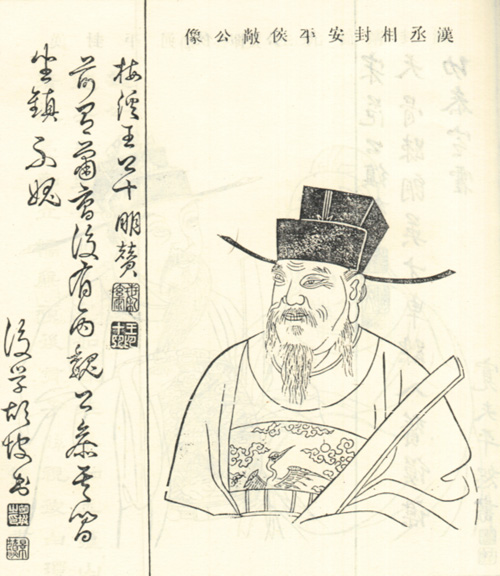 漢丞相封安平侯敞公像
梅溪王公十朋贊
前有蕭曹後有丙魏公參其間
坐鎮不愧
後學胡書